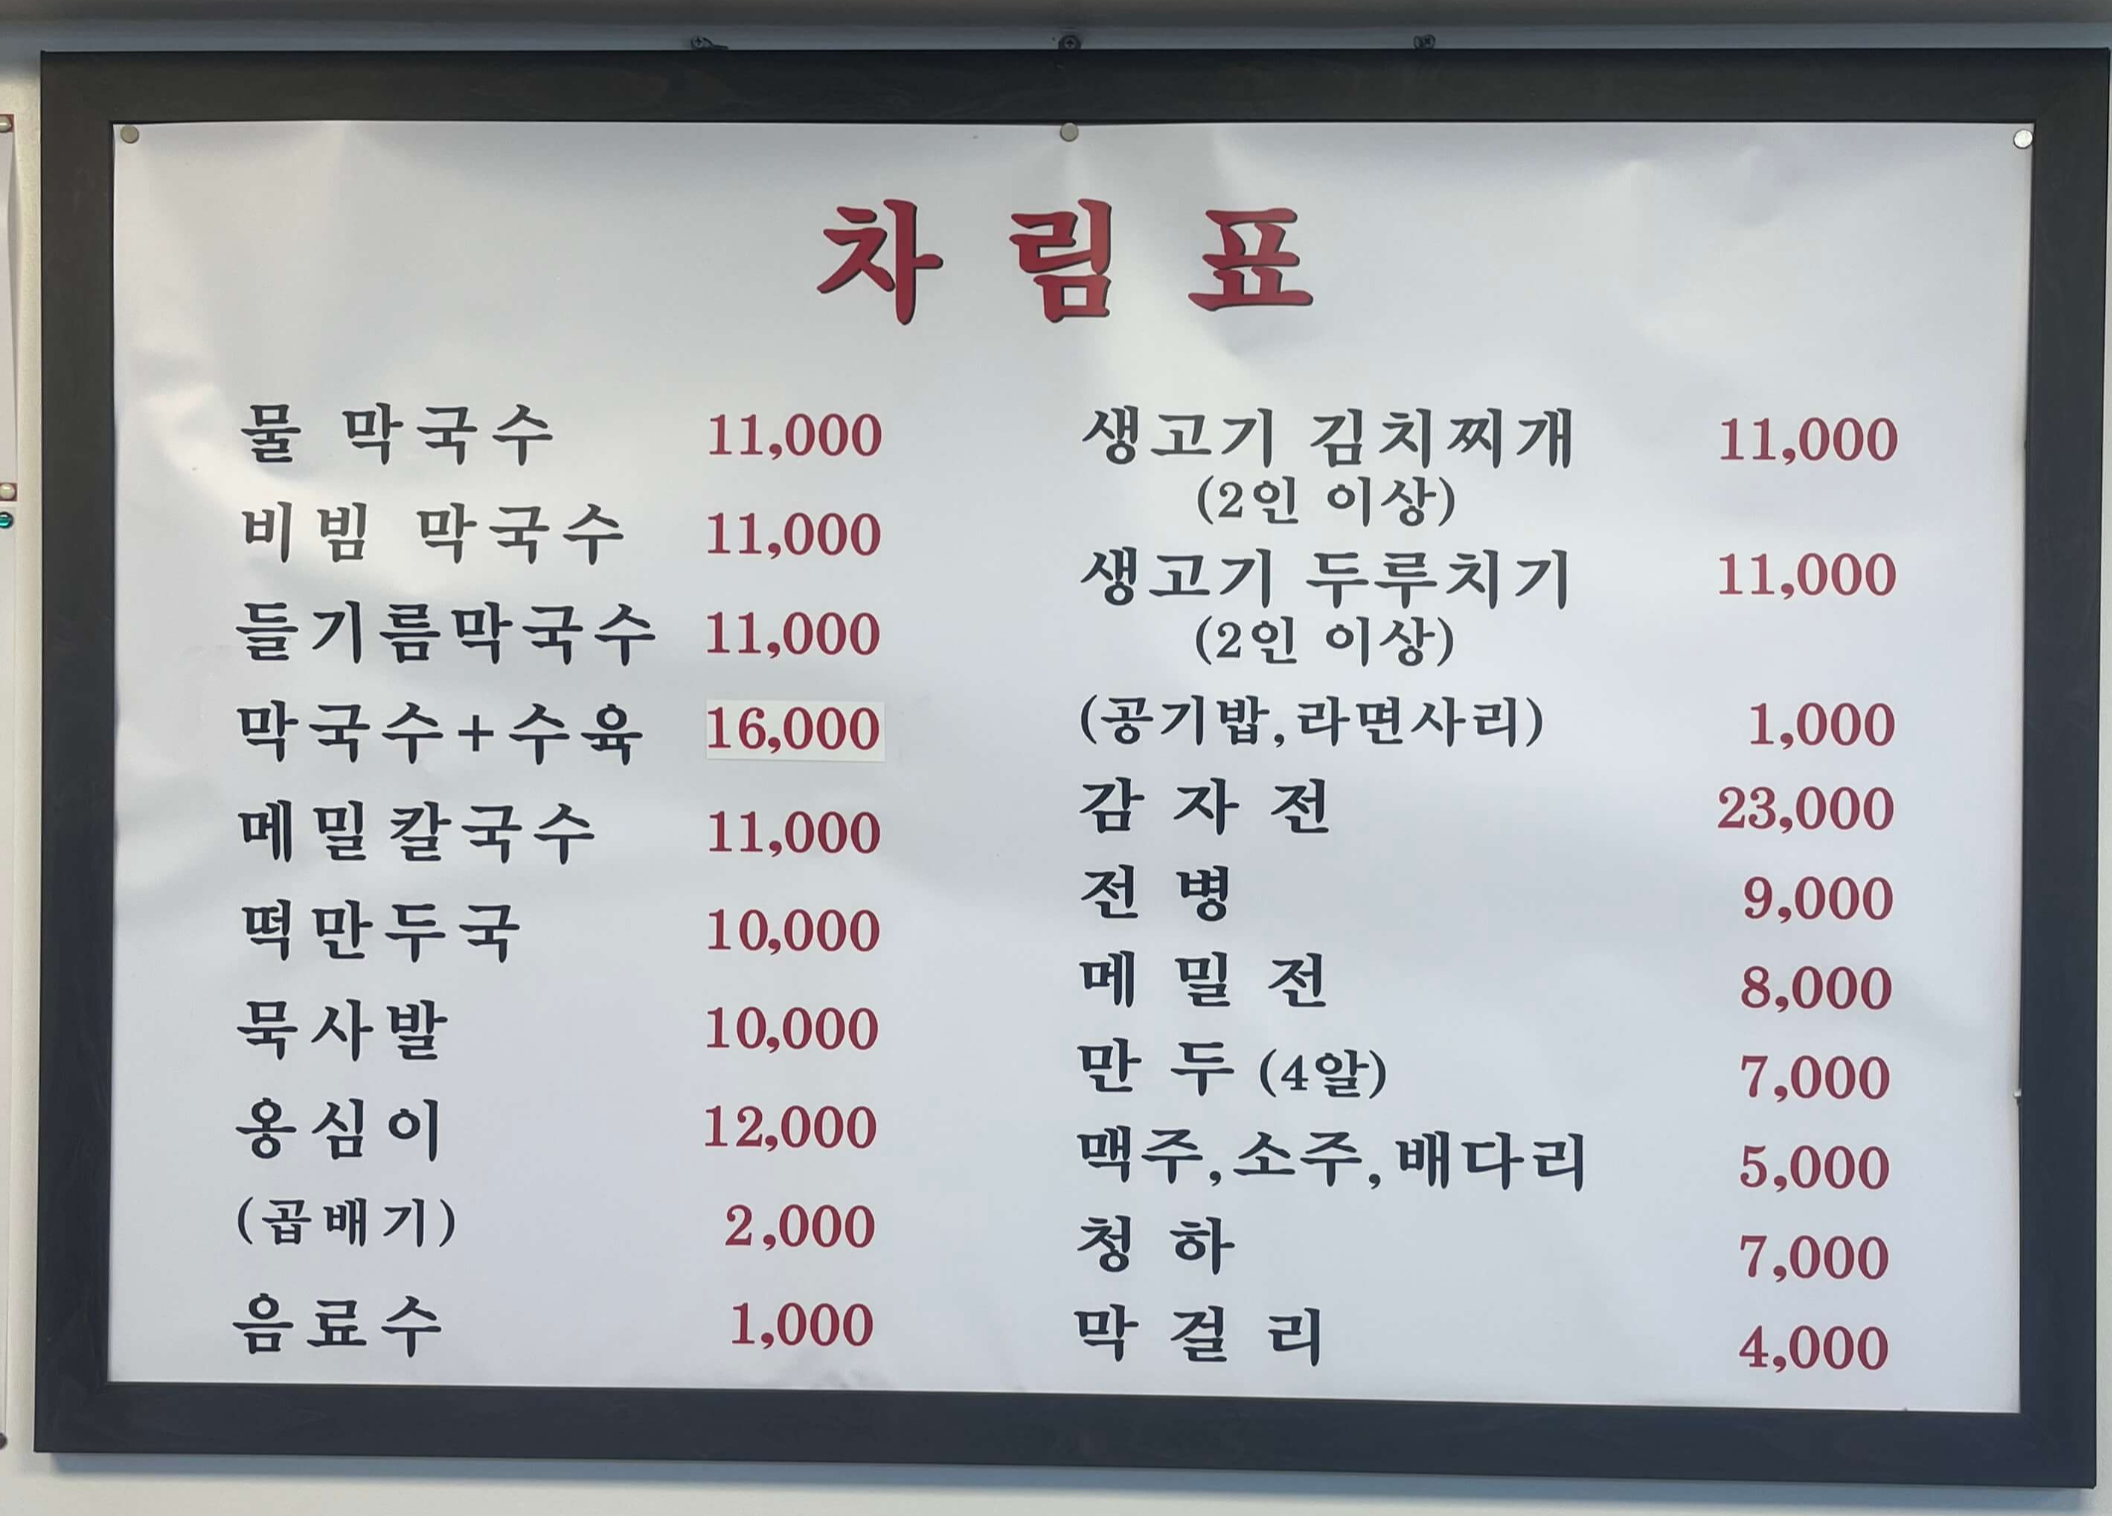 차림표
물 막국수 11,000
비빔 막국수 11,000
들기름막국수 11,000
막국수+수육 16,000
메밀칼국수 11,000
떡만두국 10,000
묵사발 10,000
옹심이 12,000
(곱배기) 2,000
음료수 1,000
생고기 김치찌개 11,000
(2인 이상)
생고기 두루치기 11,000
(2인 이상)
(공기밥,라면사리) 1,000
감자전 23,000
전병 9,000
메밀전 8,000
만두 (4알) 7,000
맥주,소주,배다리 5,000
청하 7,000
막걸리 4,000